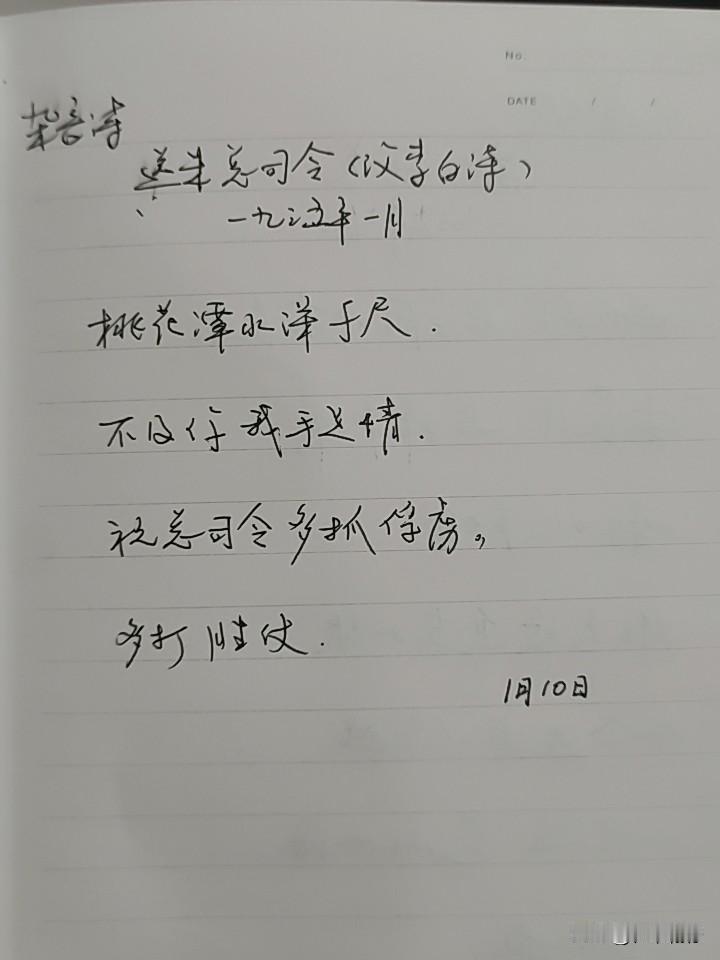 No.
DATE / /
送朱总司令(汶李白诗)
一九三五年一月
桃花潭水深千尺.
不及你我手足情.
祝总司令多抓俘虏。
多打胜仗.
1月10日